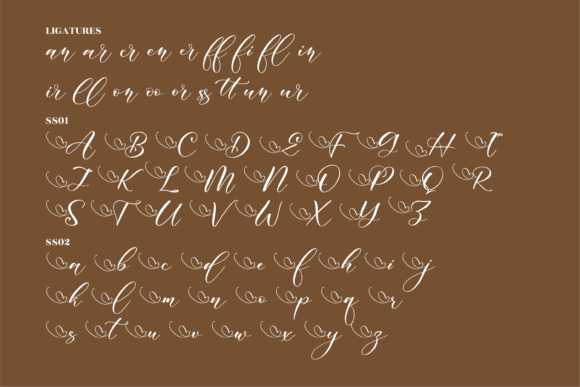 LIGATURES
an ar cr en er ff fi fl in
ir ll on oo or ss tt un ur
SS01
A B C D E F G H I
J K L M N O P Q R
S T U V W X Y Z
SS02
a b c d e f h i j
k l m n o p q r
s t u v w x y z